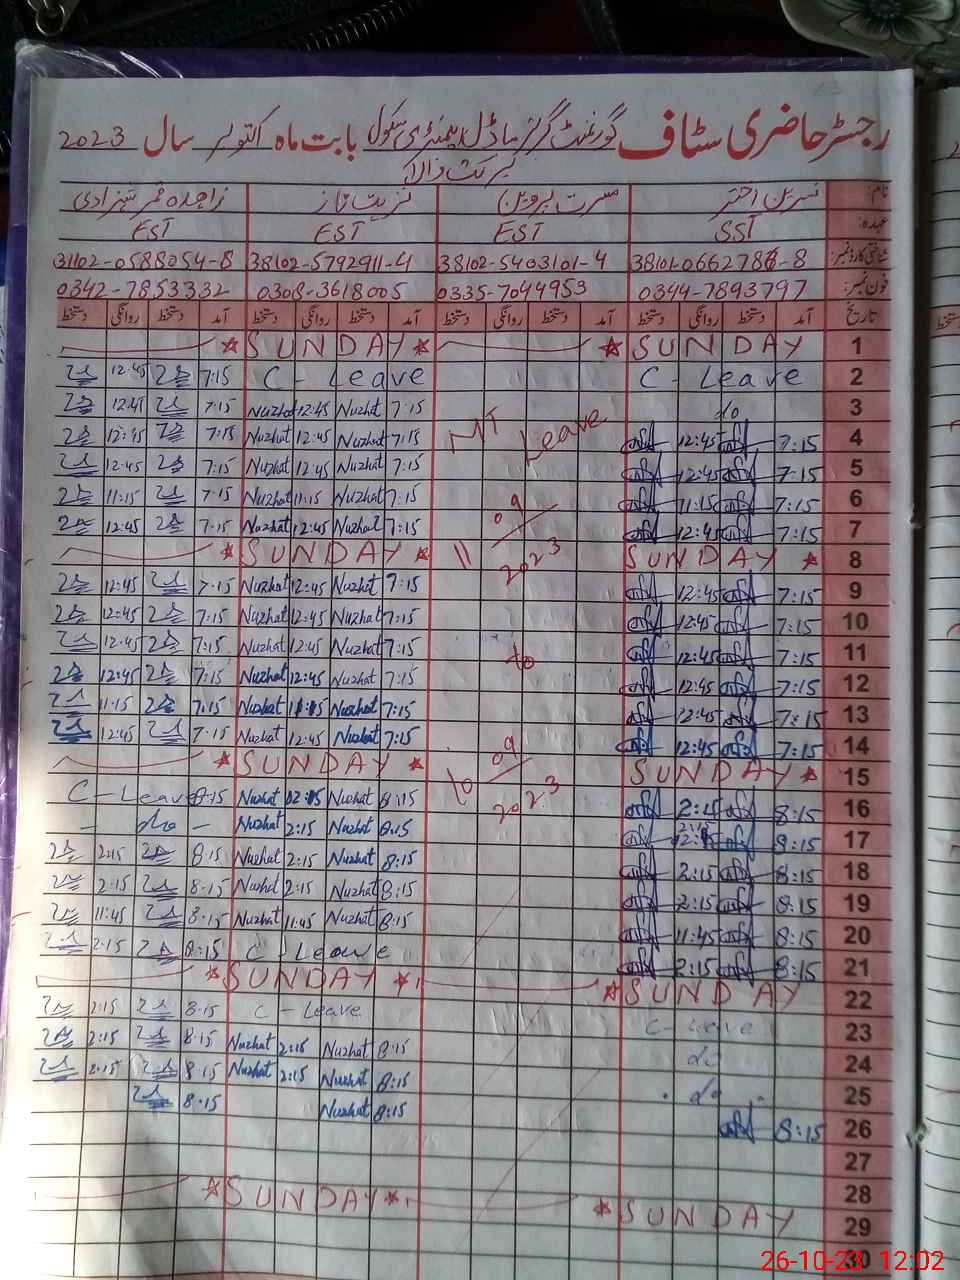 رجسٹر حاضری سٹاف گورنمنٹ گرلز ماڈل ایلیمنٹری سکول بابت ماہ اکتوبر سال 2023
نام: نسرین اختر مسرت پروین نزہت نیاز زاہدہ شہزادی
عہدہ: SST EST EST EST
شناختی کارڈ نمبر: 38102-5403101-4 38102-5792911-4 31102-0588054-8
فون نمبر: 0344-7893797 0335-7044953 0308-3618005 0342-7853332
تاریخ آمد دستخط روانگی دستخط آمد دستخط دستخط آمد دستخط روانگی دستخط آمد دستخط روانگی دستخط
1 SUNDAY SUNDAY
2 C - Leave C - Leave 7:15 12:45
3 do 7:15 Nuzhat 12:45 Nuzhat 7:15 12:45
4 7:15 12:45 MT Leave 7:15 Nuzhat 12:45 Nuzhat 7:15 12:45
5 7:15 12:45 7:15 Nuzhat 12:45 Nuzhat 7:15 12:45
6 7:15 11:15 7:15 Nuzhat 11:15 Nuzhat 7:15 11:15
7 7:15 12:45 09 7:15 Nuzhat 12:45 Nuzhat 7:15 12:45
8 SUNDAY 2023 SUNDAY
9 7:15 12:45 7:15 Nuzhat 12:45 Nuzhat 7:15 12:45
10 7:15 12:45 7:15 Nuzhat 12:45 Nuzhat 7:15 12:45
11 7:15 12:45 to 7:15 Nuzhat 12:45 Nuzhat 7:15 12:45
12 7:15 12:45 7:15 Nuzhat 12:45 Nuzhat 7:15 12:45
13 7:15 12:45 7:15 Nuzhat Nuzhat 7:15 11:15
14 7:15 12:45 09 7:15 Nuzhat 12:45 Nuzhat 7:15 12:45
15 SUNDAY 10 2023 SUNDAY
16 8:15 2:15 8:15 Nuzhat Nuzhat 8:15 C - Leave
17 8:15 2:15 8:15 Nuzhat 2:15 Nuzhat - do -
18 8:15 2:15 8:15 Nuzhat 2:15 Nuzhat 8:15 2:15
19 8:15 2:15 8:15 Nuzhat 2:15 Nuzhat 8:15 2:15
20 8:15 11:45 8:15 Nuzhat 11:45 Nuzhat 8:15 11:45
21 8:15 2:15 C - Leave 8:15 2:15
22 SUNDAY SUNDAY
23 C - Leave C - Leave 8:15 2:15
24 do 8:15 Nuzhat 2:15 Nuzhat 8:15 2:15
25 do 8:15 Nuzhat 2:15 Nuzhat 8:15 2:15
26 8:15 8:15 Nuzhat 8:15
27
28
29 SUNDAY SUNDAY
30
26-10-23 12:02